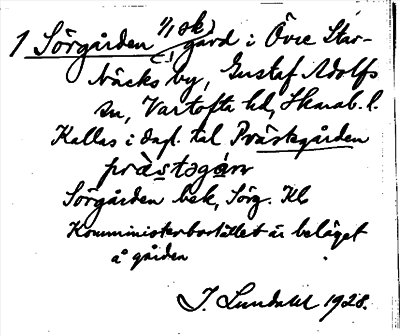 1 Sörgården 1/1 sk) gård i Övre Star-
bäcks by, Gustaf Adolfs
sn, Vartofta hd, Skarab. l.
Kallas i dagl. tal Prästgården
prästəgán
Sörgården bek, Sörg. Kb
Komministerbostället är beläget
å gården
J. Lundahl 1928.